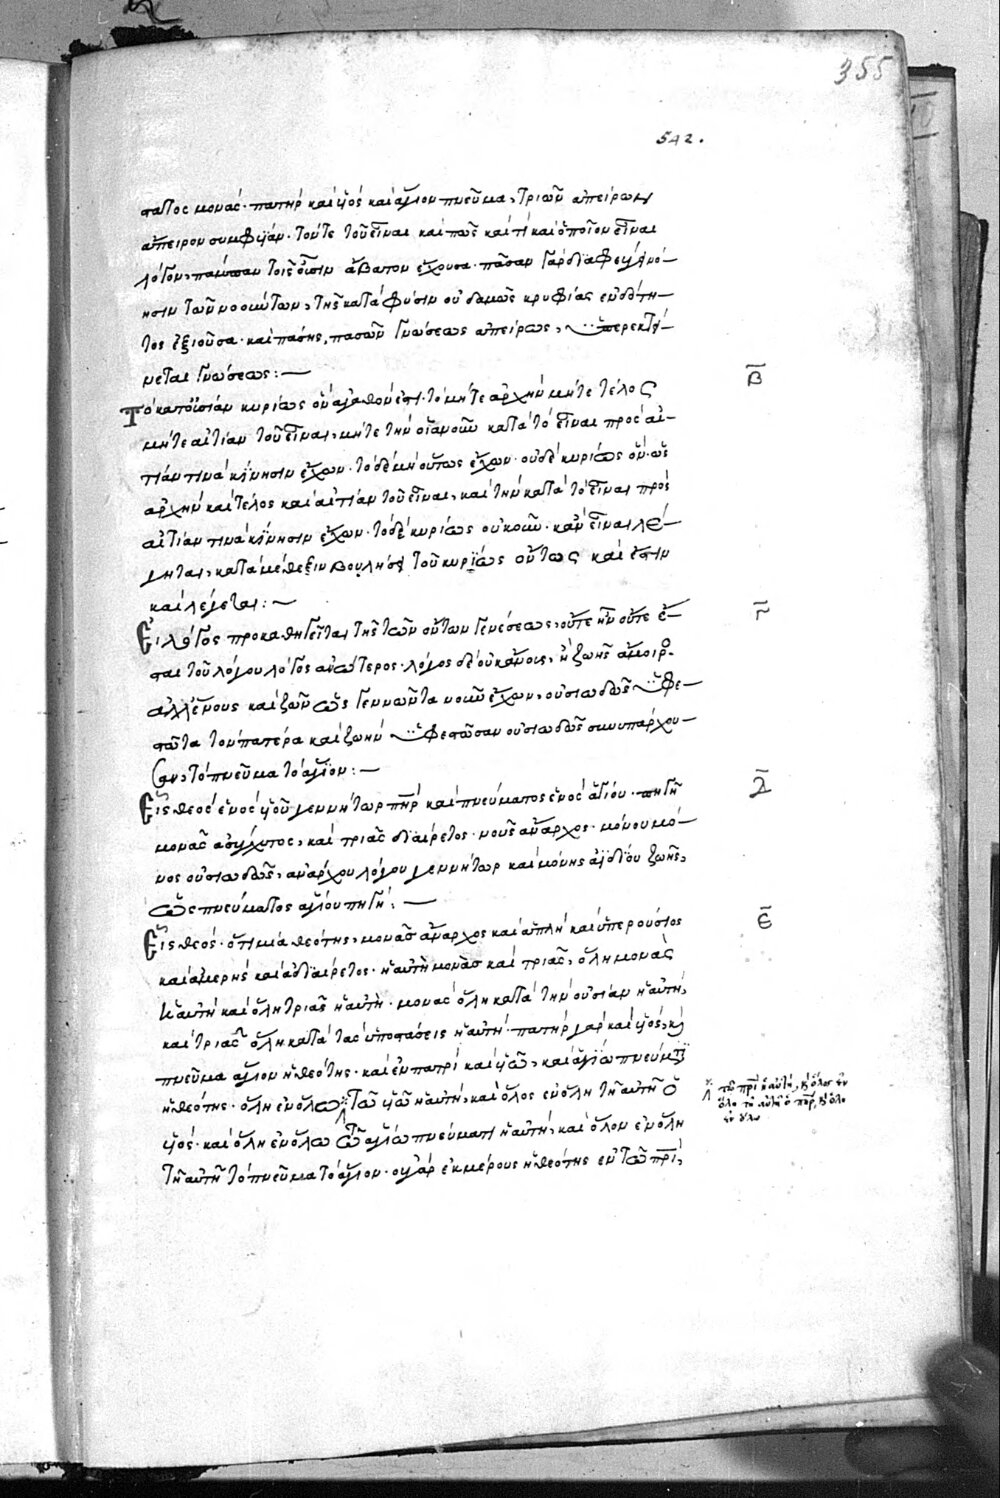 355
542.
ταῖος μονάς· πατὴρ καὶ υἱός καὶ ἅγιον πνεῦμα, τριῶν ἀπείρων
ἄπειρον συμφυΐαν· τόν τε τοῦ εἶναι καὶ πῶς καὶ τί καὶ ὁποῖον εἶναι
λόγον, πάμπαν τοῖς οὖσιν ἄβατον ἔχουσα· πᾶσαν γὰρ διαφεύγει νό-
ησιν τῶν νοούντων, τῆς κατὰ φύσιν οὐδαμῶς κρυφίας ἐνδότη-
τος ἐξιοῦσα· καὶ πάσης, πασῶν γνώσεως ἀπείρως, ὑπερεκτεί-
νεται γνώσεως:—
Β
Τὸ κατ' οὐσίαν κυρίως ὂν ἀγαθόν ἐστι· τὸ μήτε ἀρχὴν μήτε τέλος
μήτε αἰτίαν τοῦ εἶναι, μήτε τὴν οἱανοῦν κατὰ τὸ εἶναι πρὸς αἰ-
τίαν τινὰ κίνησιν ἔχων· τὸ δὲ μὴ οὕτως ἔχων· οὐδὲ κυρίως ὄν· ὡς
ἀρχὴν καὶ τέλος καὶ αἰτίαν τοῦ εἶναι, καὶ τὴν κατὰ τὸ εἶναι πρὸς
αἰτίαν τινὰ κίνησιν ἔχων· τὸ δὲ κυρίως οὐκ ὂν· κἂν εἶναι λέ-
γηται, κατὰ μέθεξιν βουλήσει τοῦ κυρίως ὄντος καὶ ἔστιν
καὶ λέγεται:—
Γ
Εἰ λόγος προκαθηγεῖται τῆς τῶν ὄντων γενέσεως, οὔτε ἦν οὔτε ἔ-
σται τοῦ λόγου λόγος ἀνώτερος· λόγος δὲ οὐκ ἄνους, ἢ ζωῆς ἄμοιρος
ἀλλ' ἔννους καὶ ζῶν ὡς γεννῶντα νοῦν ἔχων, οὐσιωδῶς ὑφε-
στῶτα τὸν πατέρα καὶ ζωὴν ὑφεστῶσαν οὐσιωδῶς συνυπάρχου-
σαν, τὸ πνεῦμα τὸ ἅγιον:—
Δ
Εἷς θεὸς ἑνὸς υἱοῦ γεννήτωρ πὴρ καὶ πνεύματος ἑνὸς ἁγίου· πηγὴ
μονὰς ἀσύγχυτος, καὶ τριὰς ἀδιαίρετος· νοῦς ἄναρχος· μόνου μό-
νος οὐσιωδῶς, ἀνάρχου λόγου γεννήτωρ καὶ μόνης ἀϊδίου ζωῆς,
ὡς πνεύματος ἁγίου πηγή:—
Ε
Εἷς θεός· ὅτι μία θεότης, μονὰς ἄναρχος καὶ ἁπλὴ καὶ ὑπερούσιος
καὶ ἀμερὴς καὶ ἀδιαίρετος· ἡ αὐτὴ μονὰς καὶ τριὰς, ὅλη μονὰς
ἡ αὐτὴ καὶ ὅλη τριὰς ἡ αὐτὴ· μονὰς ὅλη κατὰ τὴν οὐσίαν ἡ αὐτὴ,
καὶ τριὰς ὅλη κατὰ τὰς ὑποστάσεις ἡ αὐτὴ· πατὴρ γὰρ καὶ υἱός, κὶ
πνεῦμα ἅγιον ἡ θεότης· καὶ ἐν πατρὶ καὶ υἱῶ, καὶ ἁγίω πνεύματι
ἡ θεότης· ὅλη ἐν ὅλω τῶ υἱῶ ἡ αὐτὴ, καὶ ὅλος ἐν ὅλη τῆ αὐτῆ ὁ
τῶ πρὶ ἡ αὐτὴ, κ ὅλος ἐν
ὅλω τῆ αὐτῆ ὁ πὴρ, κ ὅλη
ἐν ὅλω
υἱός· καὶ ὅλη ἐν ὅλω τῶ ἁγίω πνεύματι ἡ αὐτὴ, καὶ ὅλον ἐν ὅλη
τῆ αὐτῆ τὸ πνεῦμα τὸ ἅγιον· οὐ γὰρ ἐκ μέρους ἡ θεότης ἐν τῶ πρὶ,